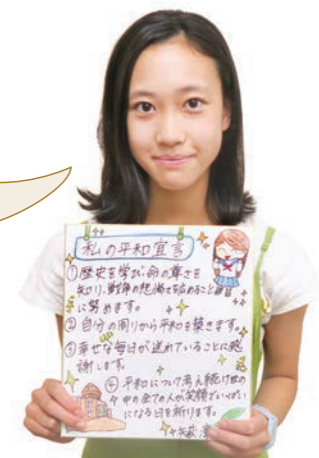 私の平和宣言
①歴史を学び命の尊さを
知り、戦争の
に努めます。
②自分の周りから平和を築きます。
③幸せな毎日が送れていることに感
謝します。
④平和について考え続け世の
中の全ての人が笑顔でいっぱい
になる日を祈ります。